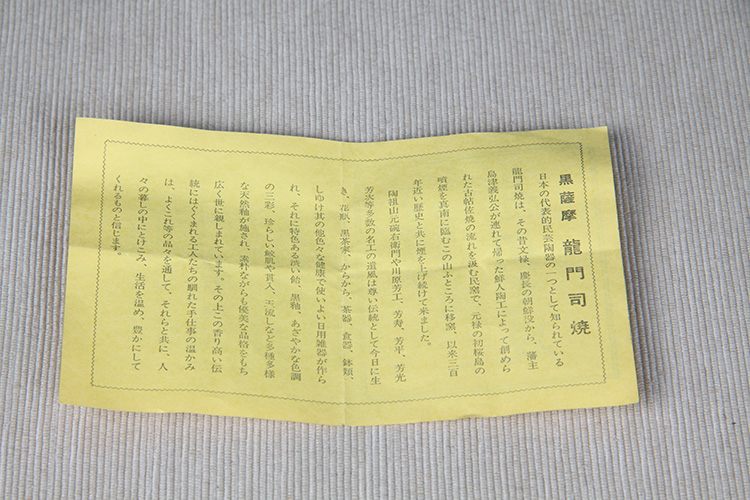 黒薩摩 龍門司焼
日本の代表的民芸陶器の一つとして知られている
龍門司焼は、その昔文禄、慶長の朝鮮役から、藩主
島津義弘公が連れて帰った鮮人陶工によって創めら
れた古帖佐焼の流れを汲む民窯で、元禄の初桜島の
噴煙を真南に臨むこの山ふところに移窯、以来三百
年近い歴史と共に煙を上げ続けて来ました。
陶祖山元碗右衛門や川原芳工、芳寿、芳平、芳光
芳次等多数の名工の遺風は尊い伝統として今日に生
き、花瓶、黒茶家、からから、茶器、食器、鉢類、
しゆけ其の他色々な健康で使いよい日用雑器が作ら
れ、それに特色ある渋い飴、黒釉、あざやかな色調
の三彩、珍らしい鮫肌や貫入、玉流しなど多種多様
な天然釉が施され、素朴ながらも優美な品格をもち
広く世に親しまれています。その上この香り高い伝
統にはぐくまれる工人たちの馴れた手仕事の温かみ
は、よくこれ等の品々を通して、それらと共に、人
々の暮しの中にとけこみ、生活を温め、豊かにして
くれるものと信じます。